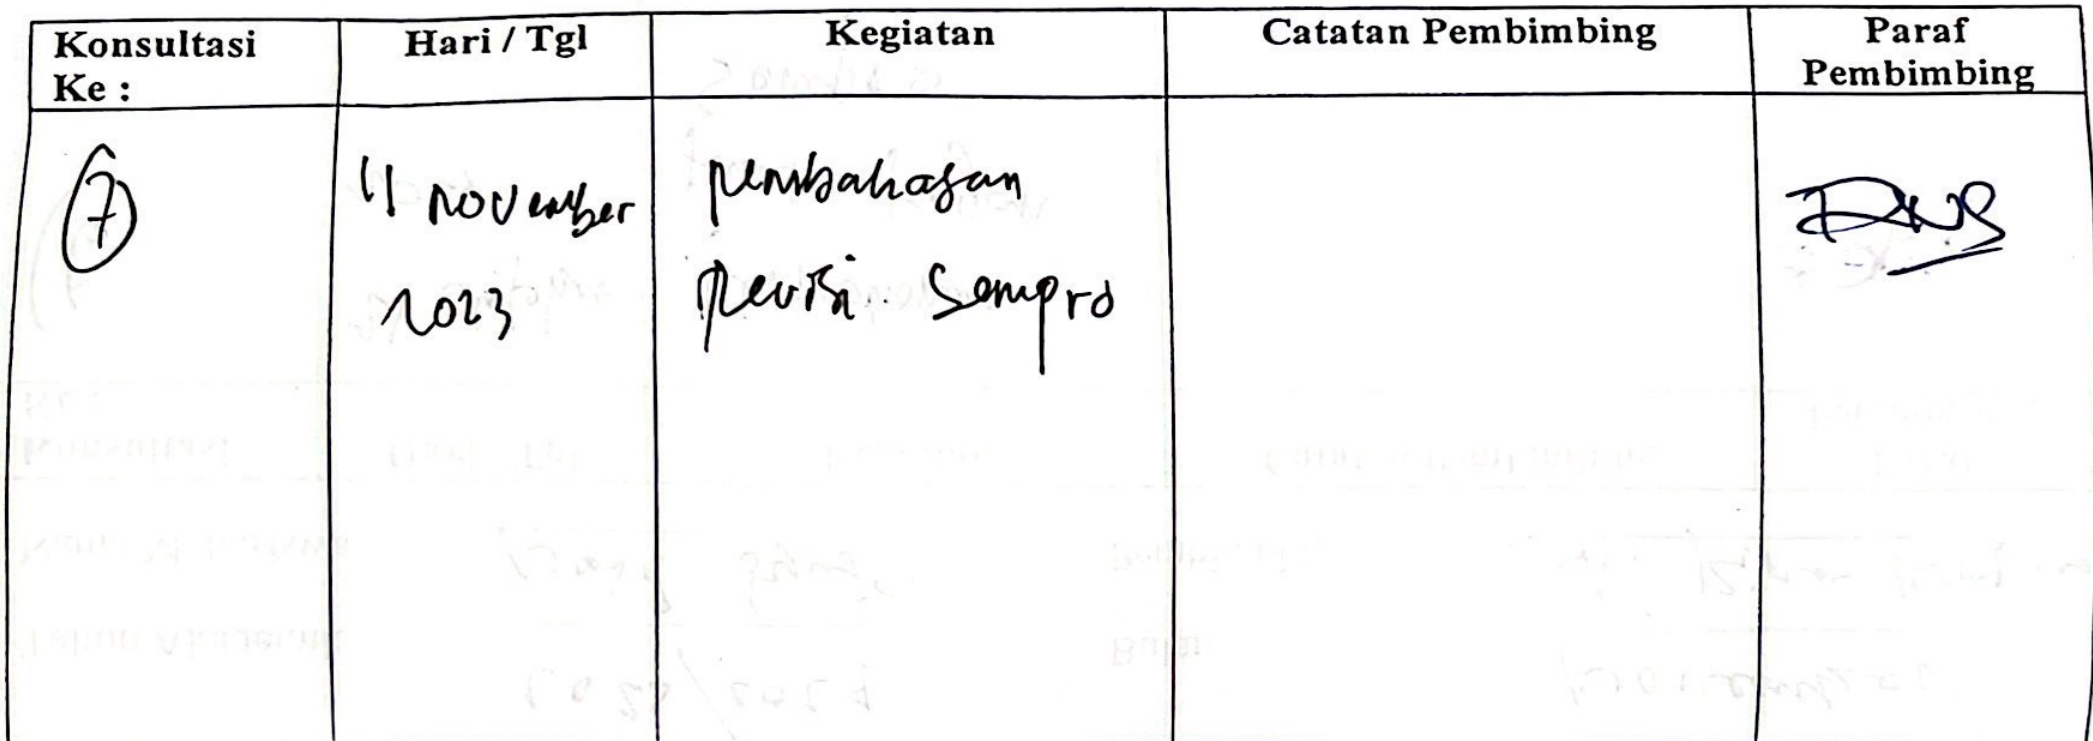 Konsultasi Ke :
Hari / Tgl
Kegiatan
Catatan Pembimbing
Paraf Pembimbing
7
11 November
2023
pembahasan
Revisi Sempro